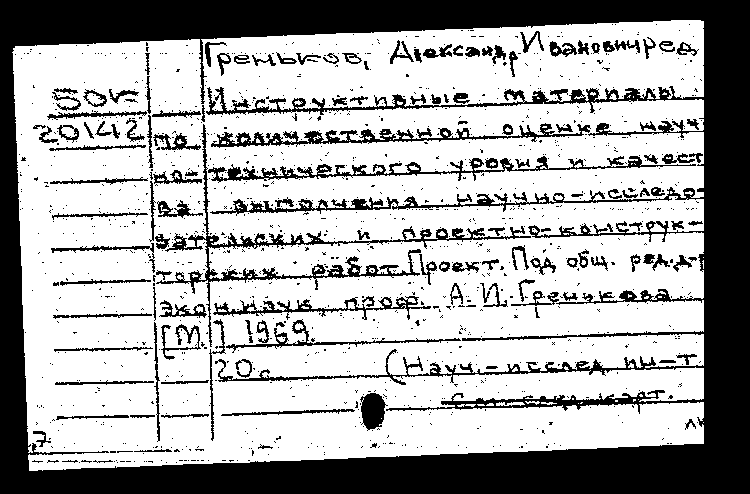 Греньков, Александр Иванович ред
50к Инструктивные материалы
20142 по количественной оценке науч-
но-технического уровня и качест
ва выполнения научно-исследо-
вательских и проектно-конструк-
торских работ. Проект. Под общ. ред. д-р
экон. наук, проф. А. И. Гренькова
[М.], 1969.
20 с. (Науч.-исслед. ин-т
карт.